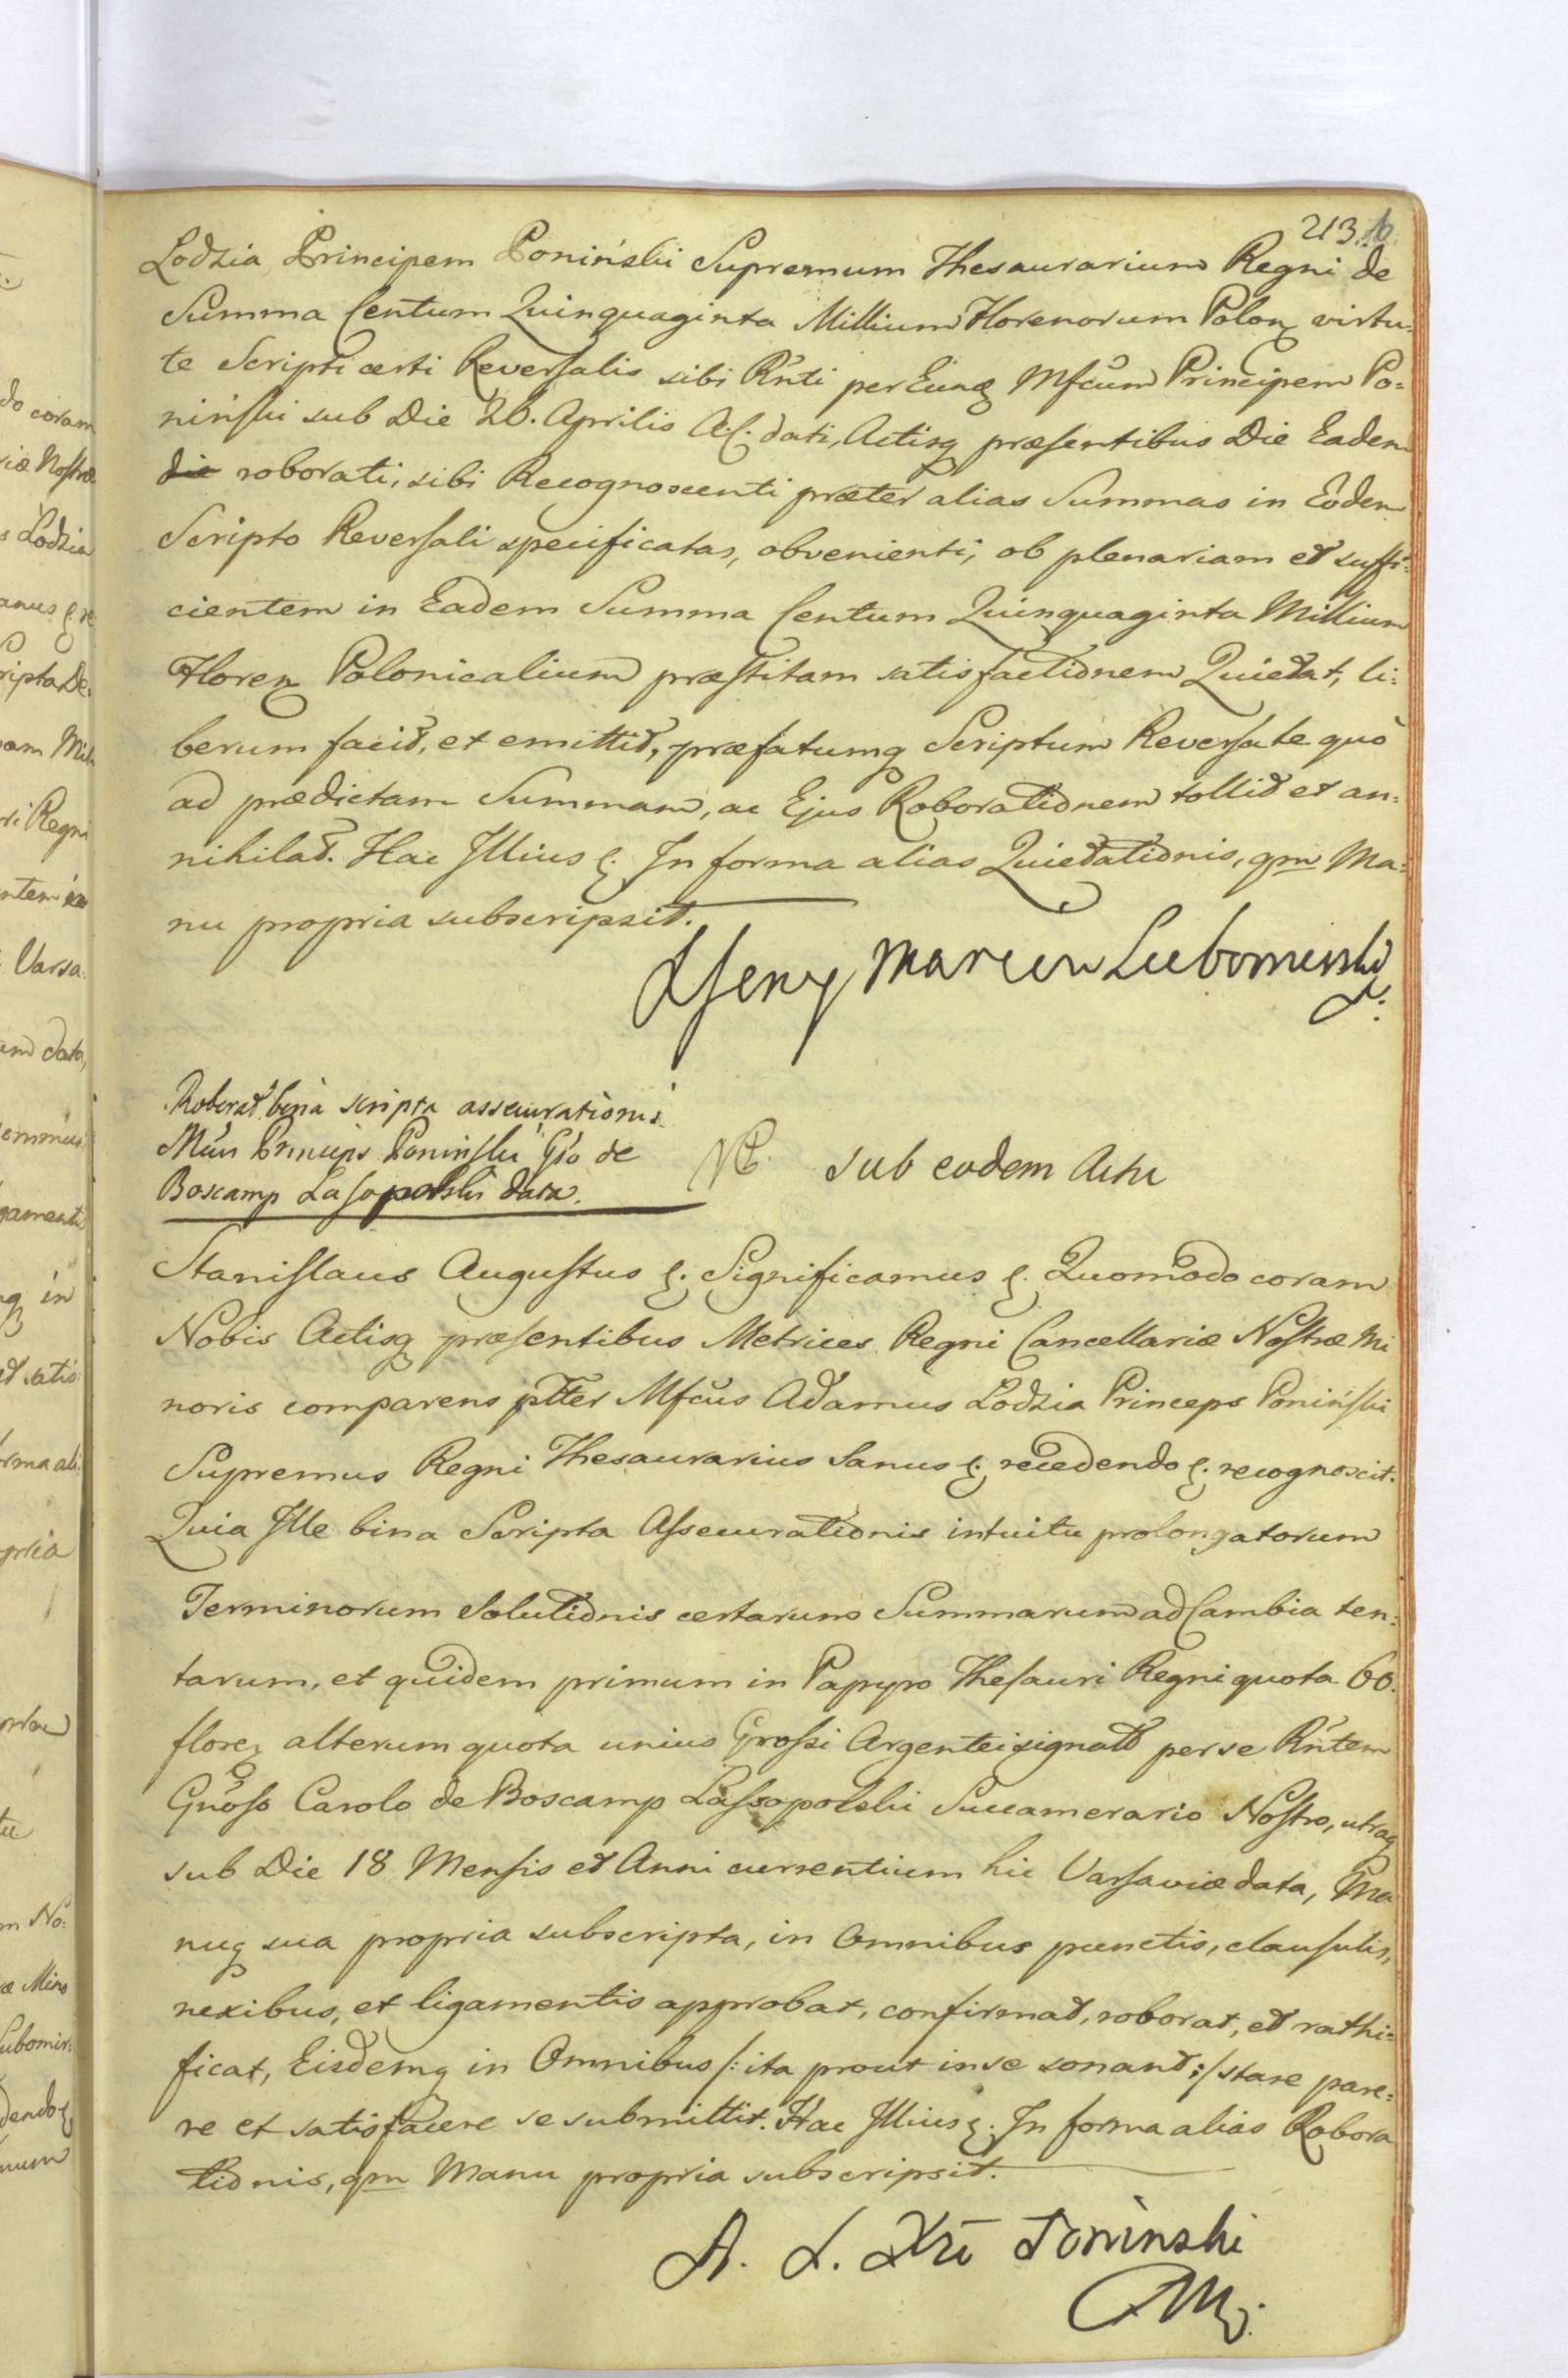 213.
Lodzia Principem Poniński Supremum Thesaurarium Regni de
Summa Centum Quinquaginta Millium Florenorum Polon virtu:
te Scripti certi Reversalis sibi Rnti per Eunq Mfcum Principem Po=
niński sub Die 26. Aprilis A.C. dati, Actisq præsentibus Die Eadem
die roborati, sibi Recognoscenti præter alias Summas in Eodem
Scripto Reversali specificatas, obvenienti, ob plenariam et suffi:
cientem in Eadem Summa Centum Quinquaginta Millium
Floren Polonicalium præstitam satisfactionem Quietat, li:
berum facit, et emittit, præfatumq Scriptum Reversale quo
ad prædictam Summam, ac Ejus Roborationem tollit et an:
nihilat. Hac Illius &. In forma alias Quietationis, qm Ma:
nu propria subscripsit.
Marcin Lubomirski
Roborat bina scripta assecurationis
Mcus Princeps Poninski Gso de
Boscamp Lasopolski data.
sub eodem Actu
Stanislaus Augustus &. Significamus &. Quomodo coram
Nobis Actisq præsentibus Metrices Regni Cancellariæ Nostræ Mi
noris comparens pltter Mfcus Adamus Lodzia Princeps Poniński
Supremus Regni Thesaurarius Sanus &. recedendo &. recognoscit.
Quia Ille bina Scripta Assecurationis intuitu prolongatorum
Terminorum Solutionis certarum Summarum ad Cambia ten:
tarum, et quidem primum in Papyro Thesauri Regni quota 60.
floren alterum quota unius Grossi Argentei signato per se Rntem
Gnoso Carolo de Boscamp Lassopolski Succamerario Nostro, utraq
sub Die 18 Mensis et Anni currentium hic Varsaviæ data, Ma
nuq sua propria subscripta, in Omnibus punctis, clausulis,
nexibus, et ligamentis approbat, confirmat, roborat, et rathi=
ficat, Eisdemq in Omnibus /: ita prout in se sonant :/ stare pare:
re et satisfacere se submittit. Hac Illius &. In forma alias Robora
tionis, qm Manu propria subscripsit.
A. L. Xże Poninski